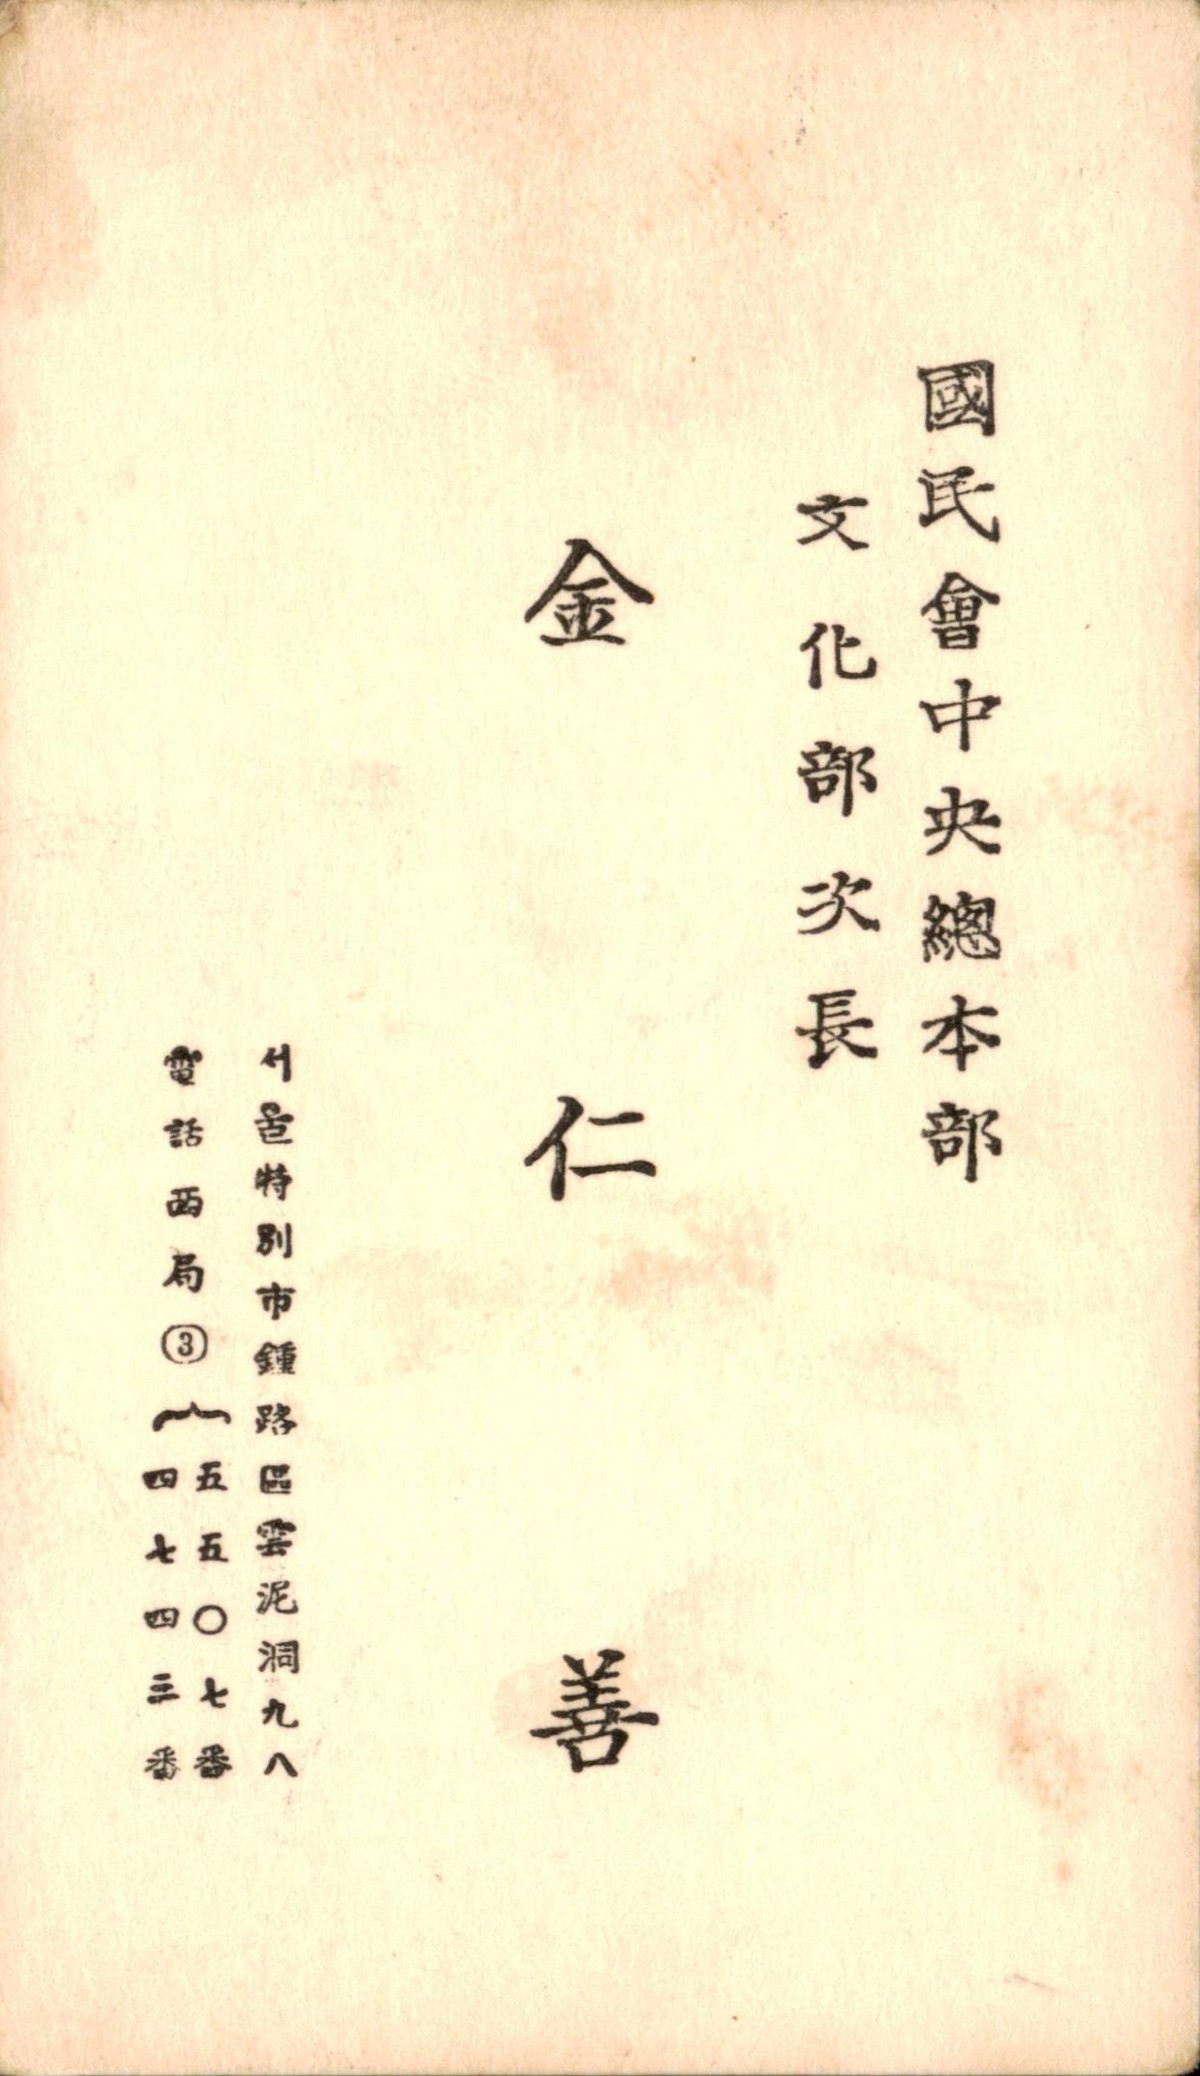 國民會中央總本部
文化部次長
金仁善
서울特別市鍾路區雲泥洞九八
電話西局③
五五〇七番
四七四三番